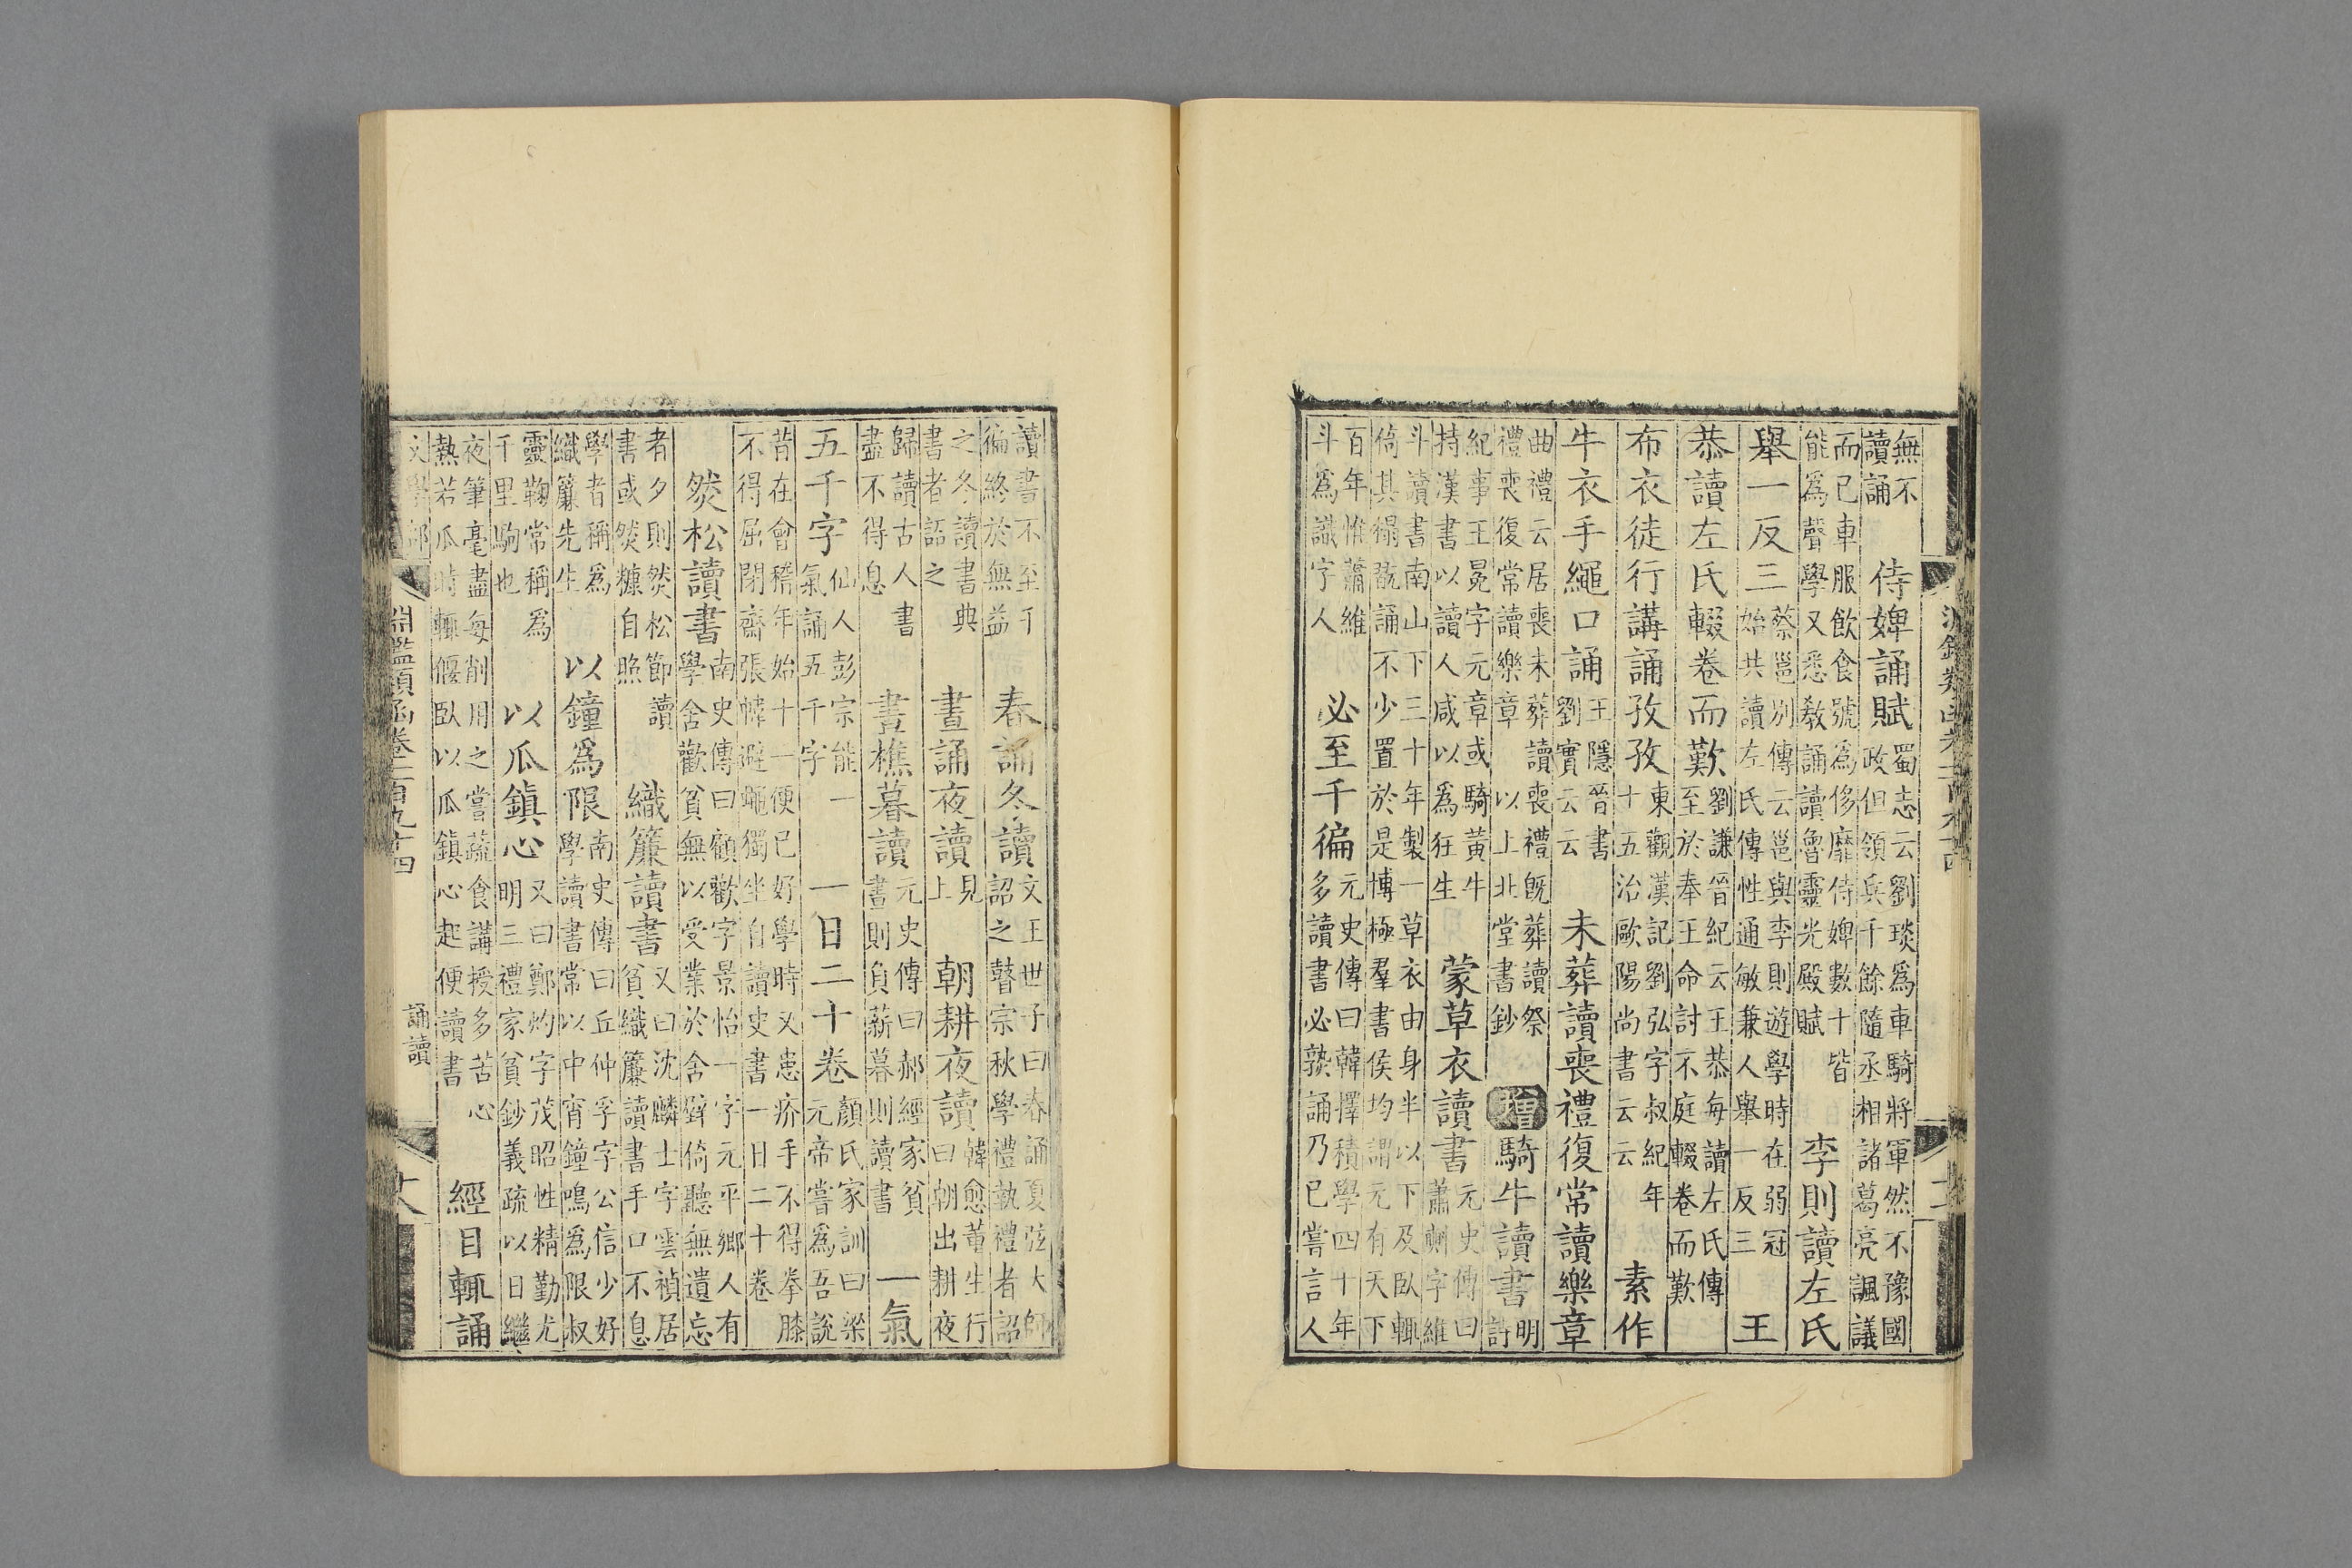 無不讀誦　侍婢誦賦蜀志云劉琰爲車騎將軍然不豫國政但領兵千餘隨丞相諸葛亮諷議
而已車服飲食號爲侈靡侍婢數十皆能爲聲學又悉敎誦讀魯靈光殿賦　李則讀左氏
舉一反三蔡邕別傳云邕與李則遊學時在弱冠始共讀左氏傳性通敏兼人舉一反三　王
恭讀左氏輟卷而歎劉謙晉紀云王恭每讀左氏傳至於奉王命討不庭輟卷而歎
布衣徒行講誦孜孜東觀漢記劉弘字叔紀年十五治歐陽尚書云云　素作
牛衣手繩口誦王隱晉書劉實云云　未葬讀喪禮復常讀樂章
曲禮云居喪未葬讀喪禮旣葬讀祭禮喪復常讀樂章　以上北堂書鈔　增騎牛讀書明詩
紀事王冕字元章或騎黃牛持漢書以讀人咸以爲狂生　蒙草衣讀書元史傳曰蕭㪺字維
斗讀書南山下三十年製一草衣由身半以下及臥輒倚其榻翫誦不少置於是博極羣書侯均謂元有天下
百年惟蕭維斗爲識字人　必至千徧元史傳曰韓擇積學四十年多讀書必熟誦乃已嘗言人
讀書不至千徧終於無益　春誦冬讀文王世子曰春誦夏弦大師詔之瞽宗秋學禮執禮者詔
之冬讀書典書者詔之　晝誦夜讀見上　朝耕夜讀韓愈董生行曰朝出耕夜
歸讀古人書盡不得息　晝樵暮讀元史傳曰郝經家貧晝則負薪暮則讀書　一氣
五千字仙人彭宗能一氣誦五千字　一日二十卷顏氏家訓曰梁元帝嘗爲吾說
昔在會稽年始十一便已好學時又患疥手不得拳膝不得屈閉齋張幃避蠅獨坐自讀史書一日二十卷
　燃松讀書南史傳曰顧歡字景怡一字元平鄉人有學舍歡貧無以受業於舍壁倚聽無遺忘
者夕則燃松節讀書或燃糠自照　織簾讀書又曰沈麟士字雲禎居貧織簾讀書手口不息
學者稱爲織簾先生　以鐘爲限南史傳曰丘仲孚字公信少好學讀書常以中宵鐘鳴爲限叔
靈鞠常稱爲千里駒也　以瓜鎮心又曰鄭灼字茂昭性精勤尤明三禮家貧鈔義疏以日繼
夜筆毫盡每削用之嘗蔬食講授多苦心熱若瓜時輒偃臥以瓜鎮心起便讀書　經目輒誦
淵鑑類函卷二百九十四　誦讀